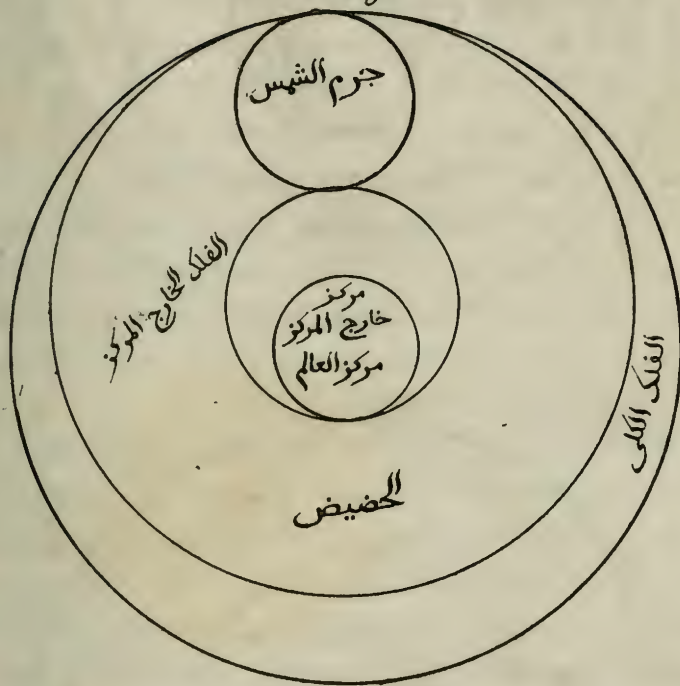 جرم الشمس
الفلك الخارج المركز
مركز
خارج المركز
مركز العالم
الفلك الكلى
الحضيض